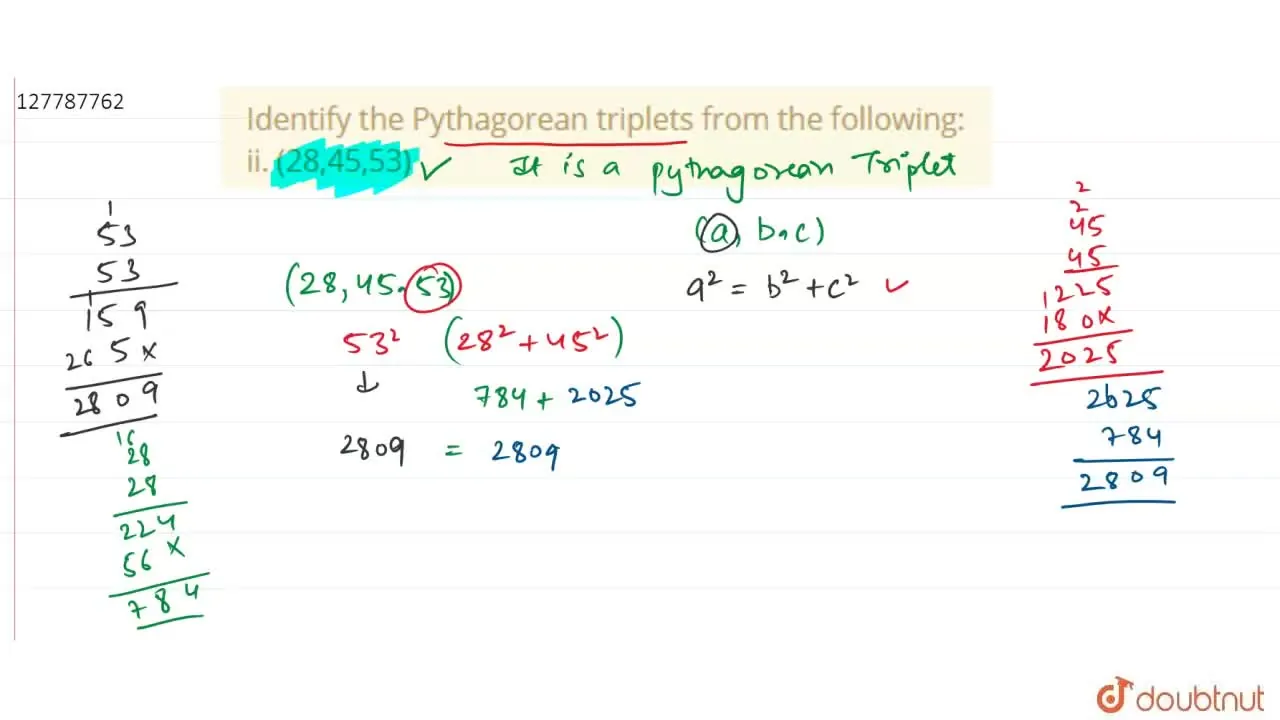 127787762
Identify the Pythagorean triplets from the following:
ii. (28,45,53) ✓ It is a pythagorean Triplet
(a, b, c)
(28, 45, 53)
a² = b² + c² ✓
53² (28² + 45²)
↓ 784 + 2025
2809 = 2809
1
53
53
1
159
265×
2809
16
28
28
224
56×
784
2
2
45
45
1225
180×
2025
2025
784
2809
doubtnut